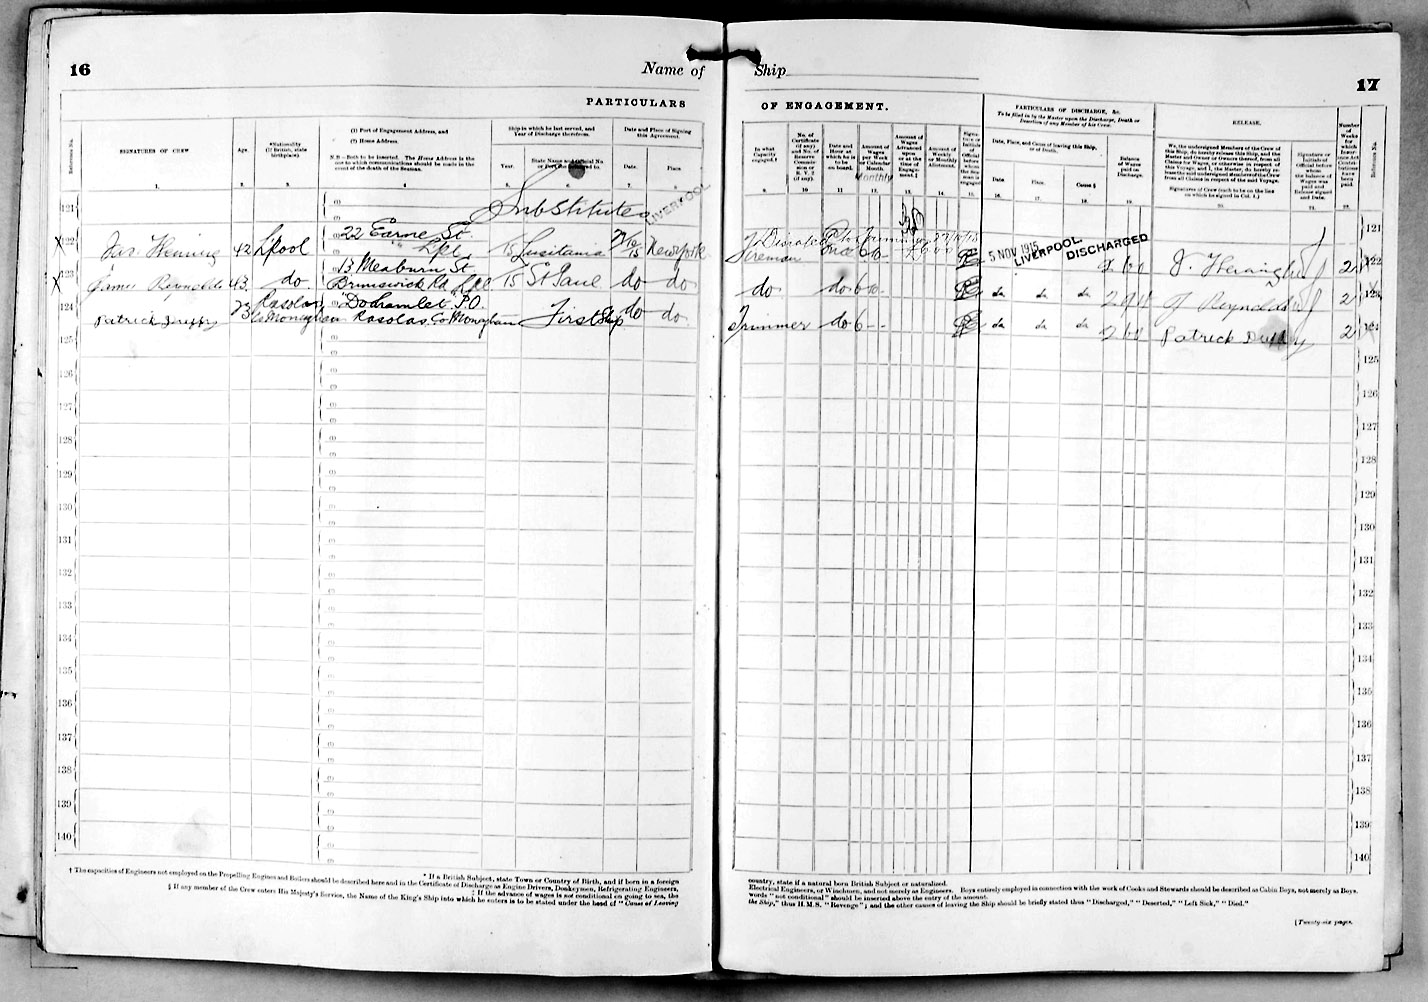 16
Name of Ship
17
PARTICULARS OF ENGAGEMENT.
PARTICULARS OF DISCHARGE, &c.
To be filled in by the Master upon the Discharge, Death or Desertion of any Member of his Crew.
RELEASE.
Reference No.
SIGNATURES OF CREW
Age.
*Nationality (If British, state birthplace).
(1) Port of Engagement Address, and
(2) Home Address.
N.B.—Both to be inserted. The Home Address is the one to which communications should be made in the event of the death of the Seaman.
Ship in which he last served, and Year of Discharge therefrom.
Year.
State Name and Official No. or Port she belonged to.
Date and Place of Signing this Agreement.
Date.
Place.
In what Capacity engaged.†
No. of Certificate (if any) and No. of Reserve Commission or R.V.2 (if any).
Date and Hour at which he is to be on board.
Amount of Wages per Week or Calendar Month.
Monthly
Amount of Wages Advanced upon or at the time of Engagement.‡
Amount of Weekly or Monthly Allotment.
Signature or Initials of Official before whom the Seaman is engaged
Date, Place, and Cause of leaving this Ship, or of Death.
Date.
Place.
Cause.§
Balance of Wages paid on Discharge.
We, the undersigned Members of the Crew of this Ship, do hereby release this Ship, and the Master and Owner or Owners thereof, from all Claims for Wages, or otherwise in respect of this Voyage; and I, the Master, do hereby release the undersigned Members of the Crew from all Claims in respect of the said Voyage.
Signatures of Crew (each to be on the line on which he signed in Col. 1.)
Signature or Initials of Official before whom the balance of Wages was paid and Release signed and Date.
Number of Weeks for which Insurance Act Contributions have been paid.
Reference No.
1. 2. 3. 4. 5. 6. 7. 8. 9. 10 11 12. 13. 14. 15. 16. 17. 18. 19. 20. 21. 22.
121 Substitutes LIVERPOOL 121
22 Earne St
122 42 L'pool Lpl 15 Lusitania 27/10/15 New York Fireman 6 10 5 NOV 1915 LIVERPOOL. DISCHARGED 2 122
13 Meaburn St
James Reynolds 43 do. Brunswick Rd Lpl 15 St Paul do do do do 6 10 do do do 2 9 J Reynolds 2 123
124 Rasolas Do Hamlet P.O.
Patrick Duffy 23 Co Monaghan Rasolas Co Monaghan First Ship do do Trimmer do 6 do do do Patrick Duffy 2 124
125 125
126 126
127 127
128 128
129 129
130 130
131 131
132 132
133 133
134 134
135 135
136 136
137 137
138 138
139 139
140 140
* If a British Subject, state Town or Country of Birth, and if born in a foreign country, state if a natural born British Subject or naturalized.
† The capacities of Engineers not employed on the Propelling Engines and Boilers should be described here and in the Certificate of Discharge as Engine Drivers, Donkeymen, Refrigerating Engineers, Electrical Engineers, or Winchmen, and not merely as Engineers. Boys entirely employed in connection with the work of Cooks and Stewards should be described as Cabin Boys, not merely as Boys.
‡ If the advance of wages is not conditional on going to sea, the words "not conditional" should be inserted above the entry of the amount.
§ If any member of the Crew enters His Majesty's Service, the Name of the King's Ship into which he enters is to be stated under the head of "Cause of Leaving the Ship," thus H.M.S. "Revenge"; and the other causes of leaving the Ship should be briefly stated thus "Discharged," "Deserted," "Left Sick," "Died."
[Twenty-six pages.